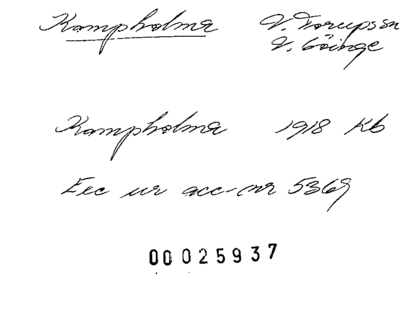 Kampholma V. Torups sn
V. Göinge
Kampholma 1918 Kb
Exc ur acc-nr 5369
00025937